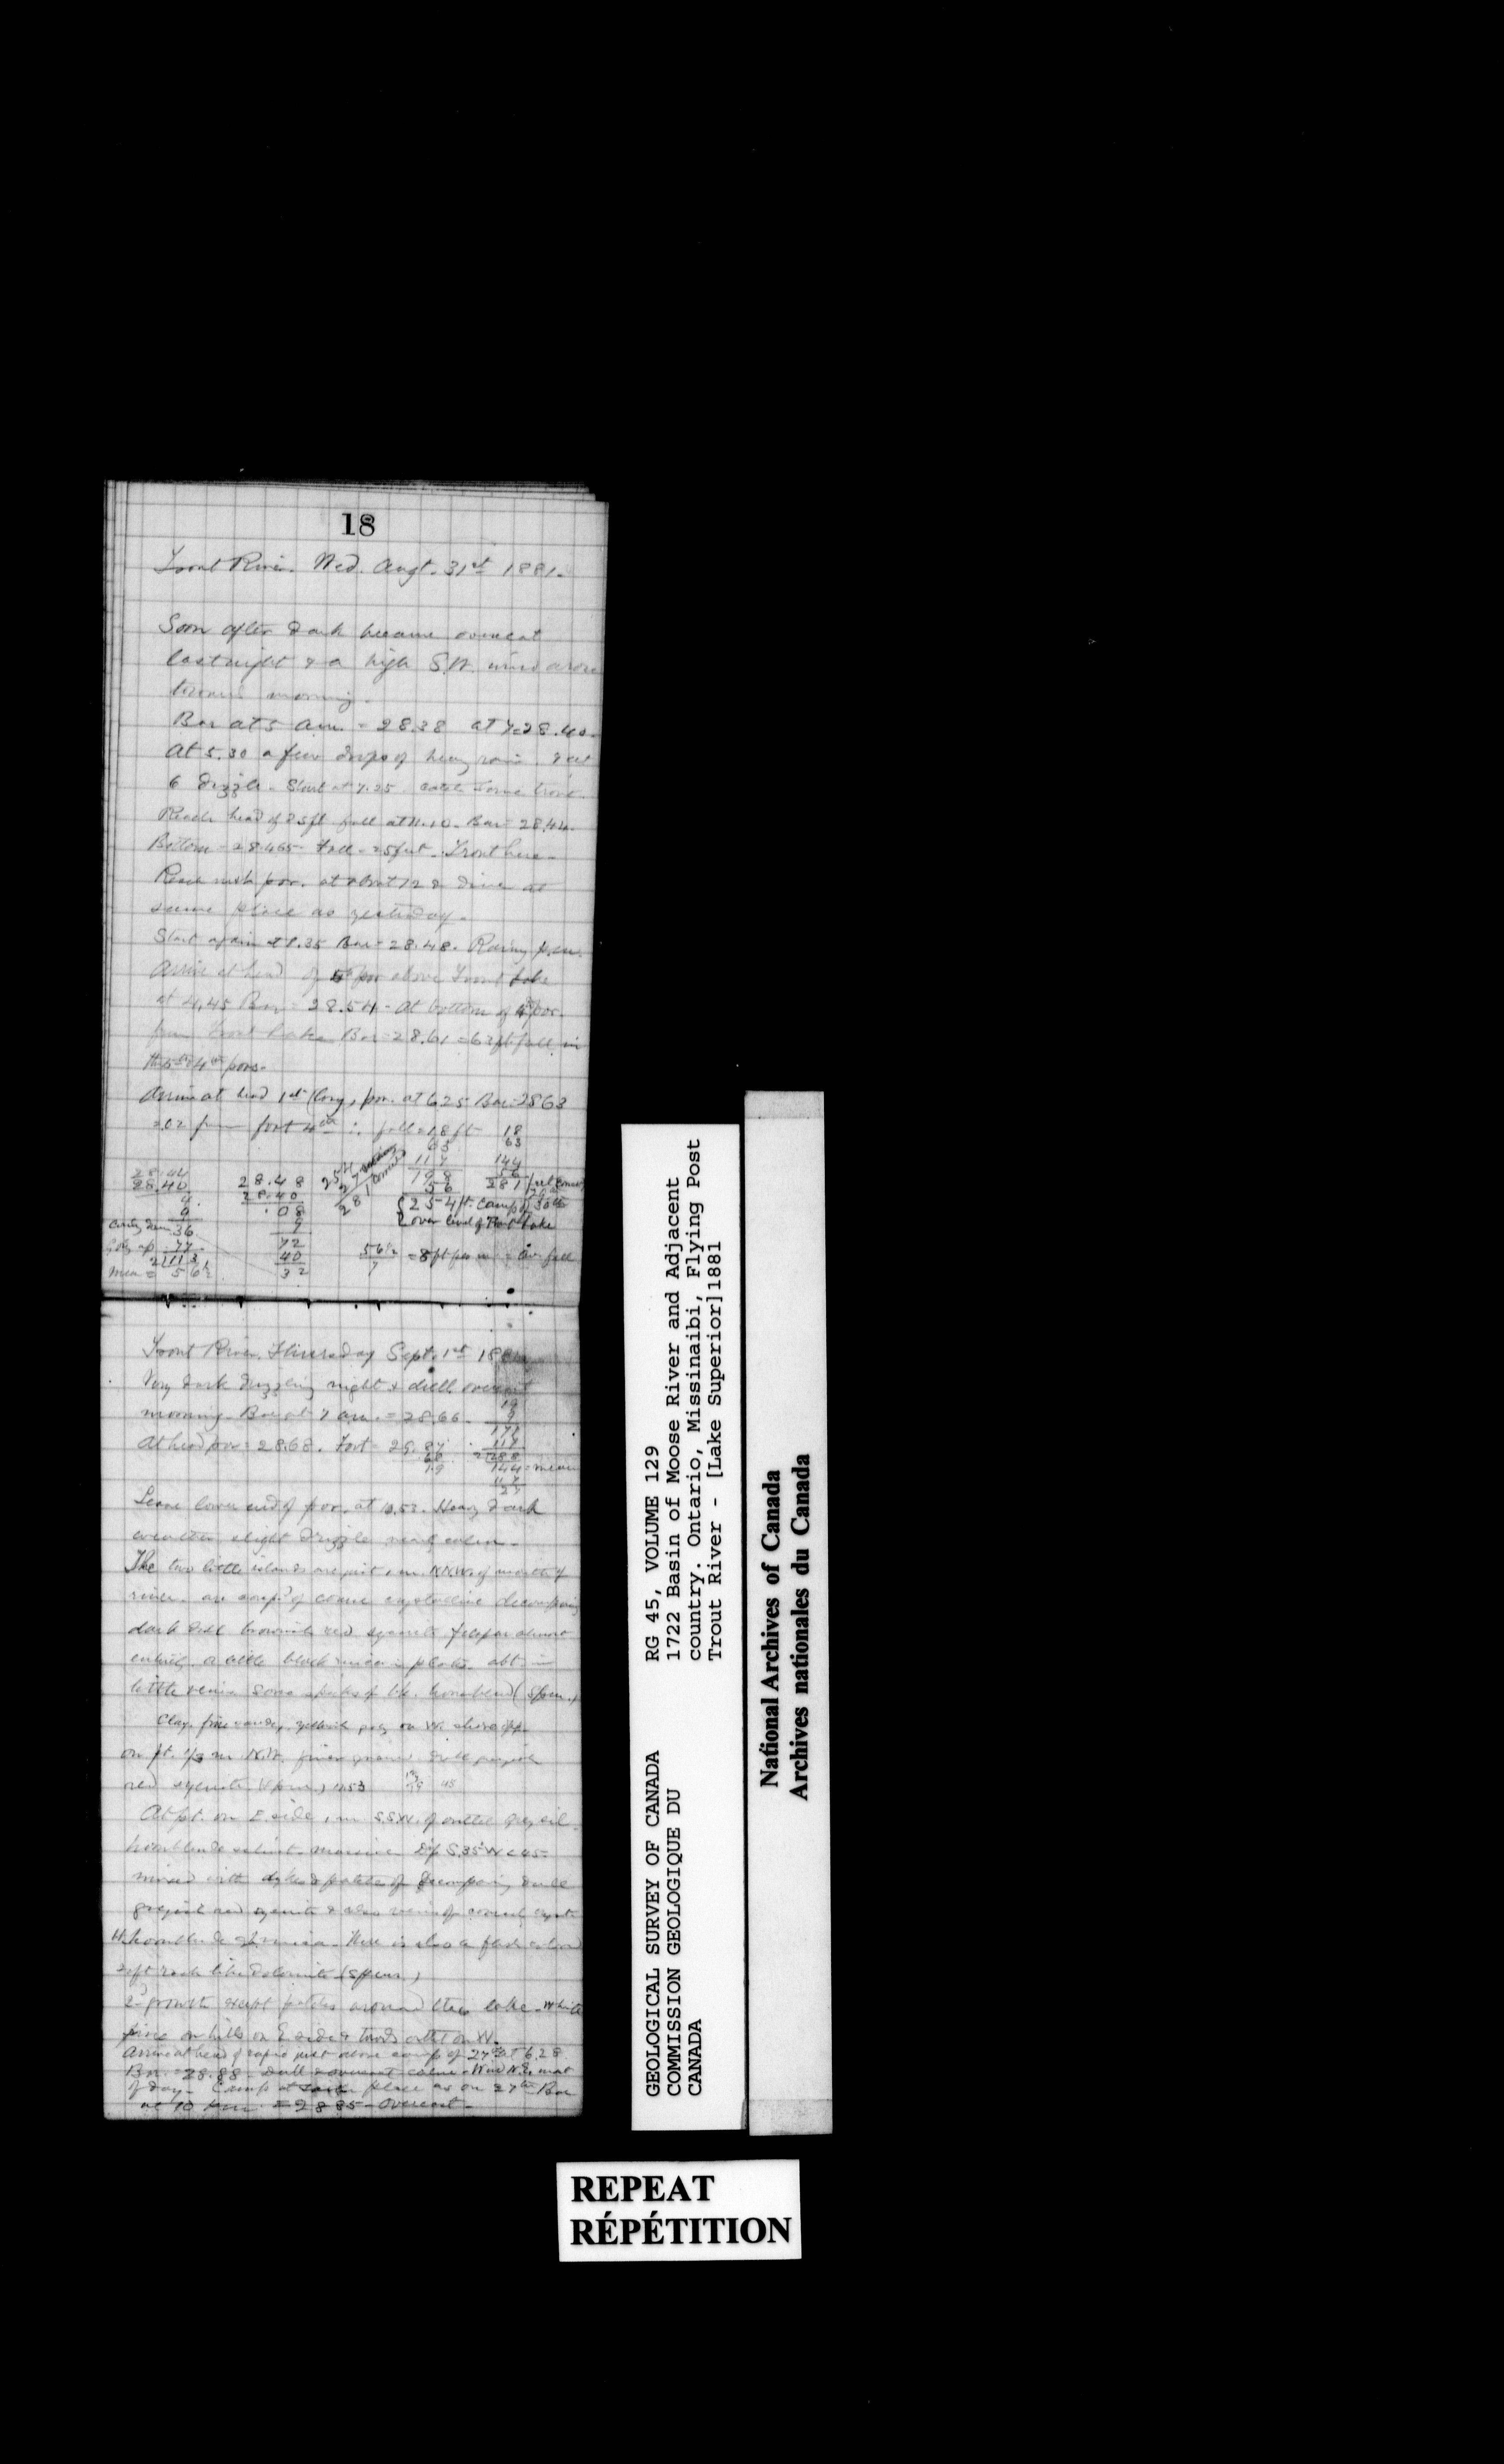 18
Trout River. Wed. Augt. 31st 1881.
Soon after dark became overcast
last night & a high S.W. wind arose
toward morning.
Bar at 5 am. = 28.38 at 7 = 28.40.
At 5.30 a few drops of heavy rain & at
6 drizzle. Start at 7.25. Catch some trout.
Reach head of 25 ft fall at 11.10. Bar = 28.44.
Bottom = 28.465. Fall = 25 feet. Trout here.
Reach next por. at about 12 & dine at
same place as yesterday.
Start again at 1.35 Bar = 28.48.
Arrive at head of 5th por above Trout Lake
at 4.45 Bar = 28.54. At bottom of 4th por.
from Trout Lake Bar = 28.61 = 63 ft fall in
the 5th & 4th pors.
Arrive at head 1st (long) por. at 6.25 Bar = 28.63
= .02 from foot 4th ∴ fall = 18 ft
18
63
63
117
144
198
56
56
281
28.44
28.40
4
9
36
77
2)113
Mean = 56½
28.48
28.40
.08
9
72
40
32
254
27
281
254 ft. Camp of 30th
over level of Trout Lake
56½
7
= 8 ft per m = av. fall
Trout River. Thursday Sept. 1st
Very dark drizzling night & dull overcast
morning. Bar at 7 am. = 28.66.
At head por = 28.68. Foot =
19
9
171
117
2)288
144 = mean
Leave lower end of por. at 10.53. Heavy dark
weather slight drizzle nearly calm.
The two little islands are just 1 m. N.N.W. of mouth of
river. are comp'd of coarse crystalline decomposing
dark dull brownish red syenite felspar almost
entirely. a little black mica in
little veins. Some specks of blk. hornblend (Spcn.)
Clay, fine sandy, yellowish grey on W. shore opp.
on pt. 1/3 m N.W. finer grained dull purplish
red syenite (Spcn.) 12.53
At pt. on E. side, 1 m S.S.W. of outlet grey
hornblende schist massive Dip S.35°W < 45°
mixed with dykes & patches of decomposing dull
greyish red syenite & also veins of
hornblende & mica. There is also a flesh colored
soft rock like dolomite (Spcn.)
2nd growth except patches around this lake. White
pine on hills on E. side & towds outlet on W.
Arrive at head of rapid just above camp of 27th at 6.28
Bar. = 28.88. Dull & overcast calm. Wind N.E. most
of day. Camp at same place as on 27th Bar
at 10 p.m. = 28.85. Overcast.
GEOLOGICAL SURVEY OF CANADA
COMMISSION GEOLOGIQUE DU
CANADA
RG 45, VOLUME 129
1722 Basin of Moose River and Adjacent
country. Ontario, Missinaibi, Flying Post
Trout River - [Lake Superior]1881
National Archives of Canada
Archives nationales du Canada
REPEAT
RÉPÉTITION